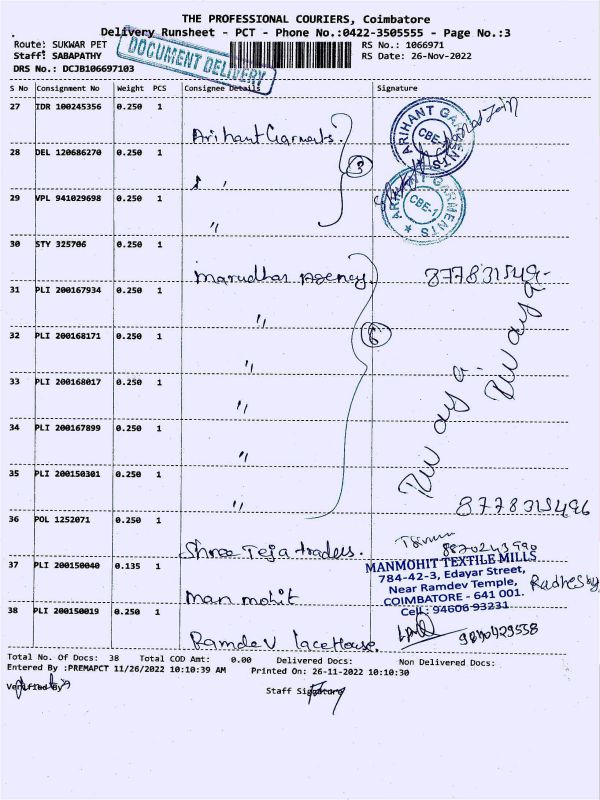 THE PROFESSIONAL COURIERS, Coimbatore
Delivery Runsheet - PCT - Phone No.:0422-3505555 - Page No.:3
Route: SUKWAR PET
RS No.: 1066971
Staff: SABAPATHY
RS Date: 26-Nov-2022
DRS No.: DCJB106697103
DOCUMENT DELIVERY
S No Consignment No Weight PCS Consignee Details Signature
27 IDR 100245356 0.250 1 Arihant Garments.
ARIHANT GARMENTS
CBE-1
28 DEL 120686270 0.250 1 "
3
29 VPL 941029698 0.250 1 "
ARIHANT GARMENTS
CBE-1
30 STY 325706 0.250 1 Marudhar Agency.
31 PLI 200167934 0.250 1 "
32 PLI 200168171 0.250 1 "
6
33 PLI 200168017 0.250 1 "
34 PLI 200167899 0.250 1 "
35 PLI 200150301 0.250 1 "
8778315496
36 POL 1252071 0.250 1 Shree Teja traders.
37 PLI 200150040 0.135 1 Man mohit
MANMOHIT TEXTILE MILLS
784-42-3, Edayar Street,
Near Ramdev Temple,
COIMBATORE - 641 001.
Cell : 94606 93231
38 PLI 200150019 0.250 1 Ramdev lace House.
Total No. Of Docs: 38 Total COD Amt: 0.00 Delivered Docs: Non Delivered Docs:
Entered By :PREMAPCT 11/26/2022 10:10:39 AM Printed On: 26-11-2022 10:10:30
Verified By
Staff Signature